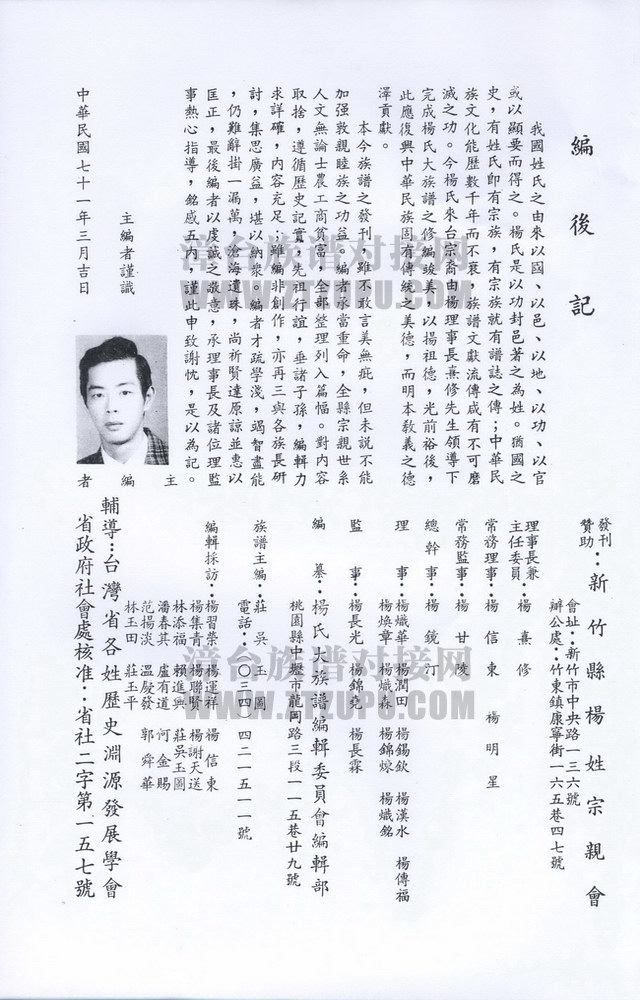 編後記
我國姓氏之由來以國、以邑、以地、以功、以官
或以顯要而得之。楊氏是以功封邑著之為姓。猶國之
史,有姓氏即有宗族,有宗族就有譜誌之傳;中華民
族文化能歷數千年而不衰,族譜文獻流傳成有不可磨
滅之功。今楊氏來台宗裔由楊理事長熹修先生領導下
完成楊氏大族譜之修編竣美,以揚祖德,光前裕後,
此應復興中華民族固有傳統之美德,而明本敎義之德
澤貢獻。
本今族譜之發刊,雖不敢言美無疵,但未說不能
加强敦親睦族之功益。編者承當重命,全縣宗親世系
人文無論士農工商貧富,全部整理列入篇幅。對內容
取捨,遵循歷史記實,先祖行誼,垂諸子孫,編輯力
求詳確,內容充足;雖編非創作,亦再三與各族長研
討,集思廣益,堪以納衆。編者才疏學淺,竭智盡能
,仍難辭掛一漏萬,滄海遺珠,尚祈賢達原諒並惠以
匡正,最後編者以虔誠之敬意,承理事長及諸位理監
事熱心指導,銘感五內,謹此申致謝忱,是以為記。
主編者謹識
中華民國七十一年三月吉日
主編者
發刊
贊助:新竹縣楊姓宗親會
會址:新竹市中央路一三六號
辦公處:竹東鎮康寧街一六五巷四七號
理事長兼
主任委員:楊熹修
常務理事:楊信東 楊明星
常務監事:楊甘陵
總幹事:楊鏡汀
理事:楊熾華 楊潤田 楊錫欽 楊漢水 楊傳福
楊煥章 楊熾森 楊錦㷍 楊熾銘
監事:楊長光 楊錦堯 楊長霖
編纂:楊氏大族譜編輯委員會編輯部
桃園縣中壢市龍岡路三段一一五巷廿九號
族譜主編:莊吳玉圖
電話:(〇三四)四二一五一一號
編輯採訪:楊習榮 楊運祥 楊信東
楊集青 楊聯賢 楊謝天送
林添福 賴進興 莊吳玉圖
潘春其 盧有道 何金賜
范揚淡 溫 發 郭舜華
林玉田 莊玉平
輔導:台灣省各姓歷史淵源發展學會
省政府社會處核准:省社二字第一五七號
漳台族谱对接网
WWW.ZTZUPU.COM
漳台族谱对接网
WWW.ZTZUPU.COM